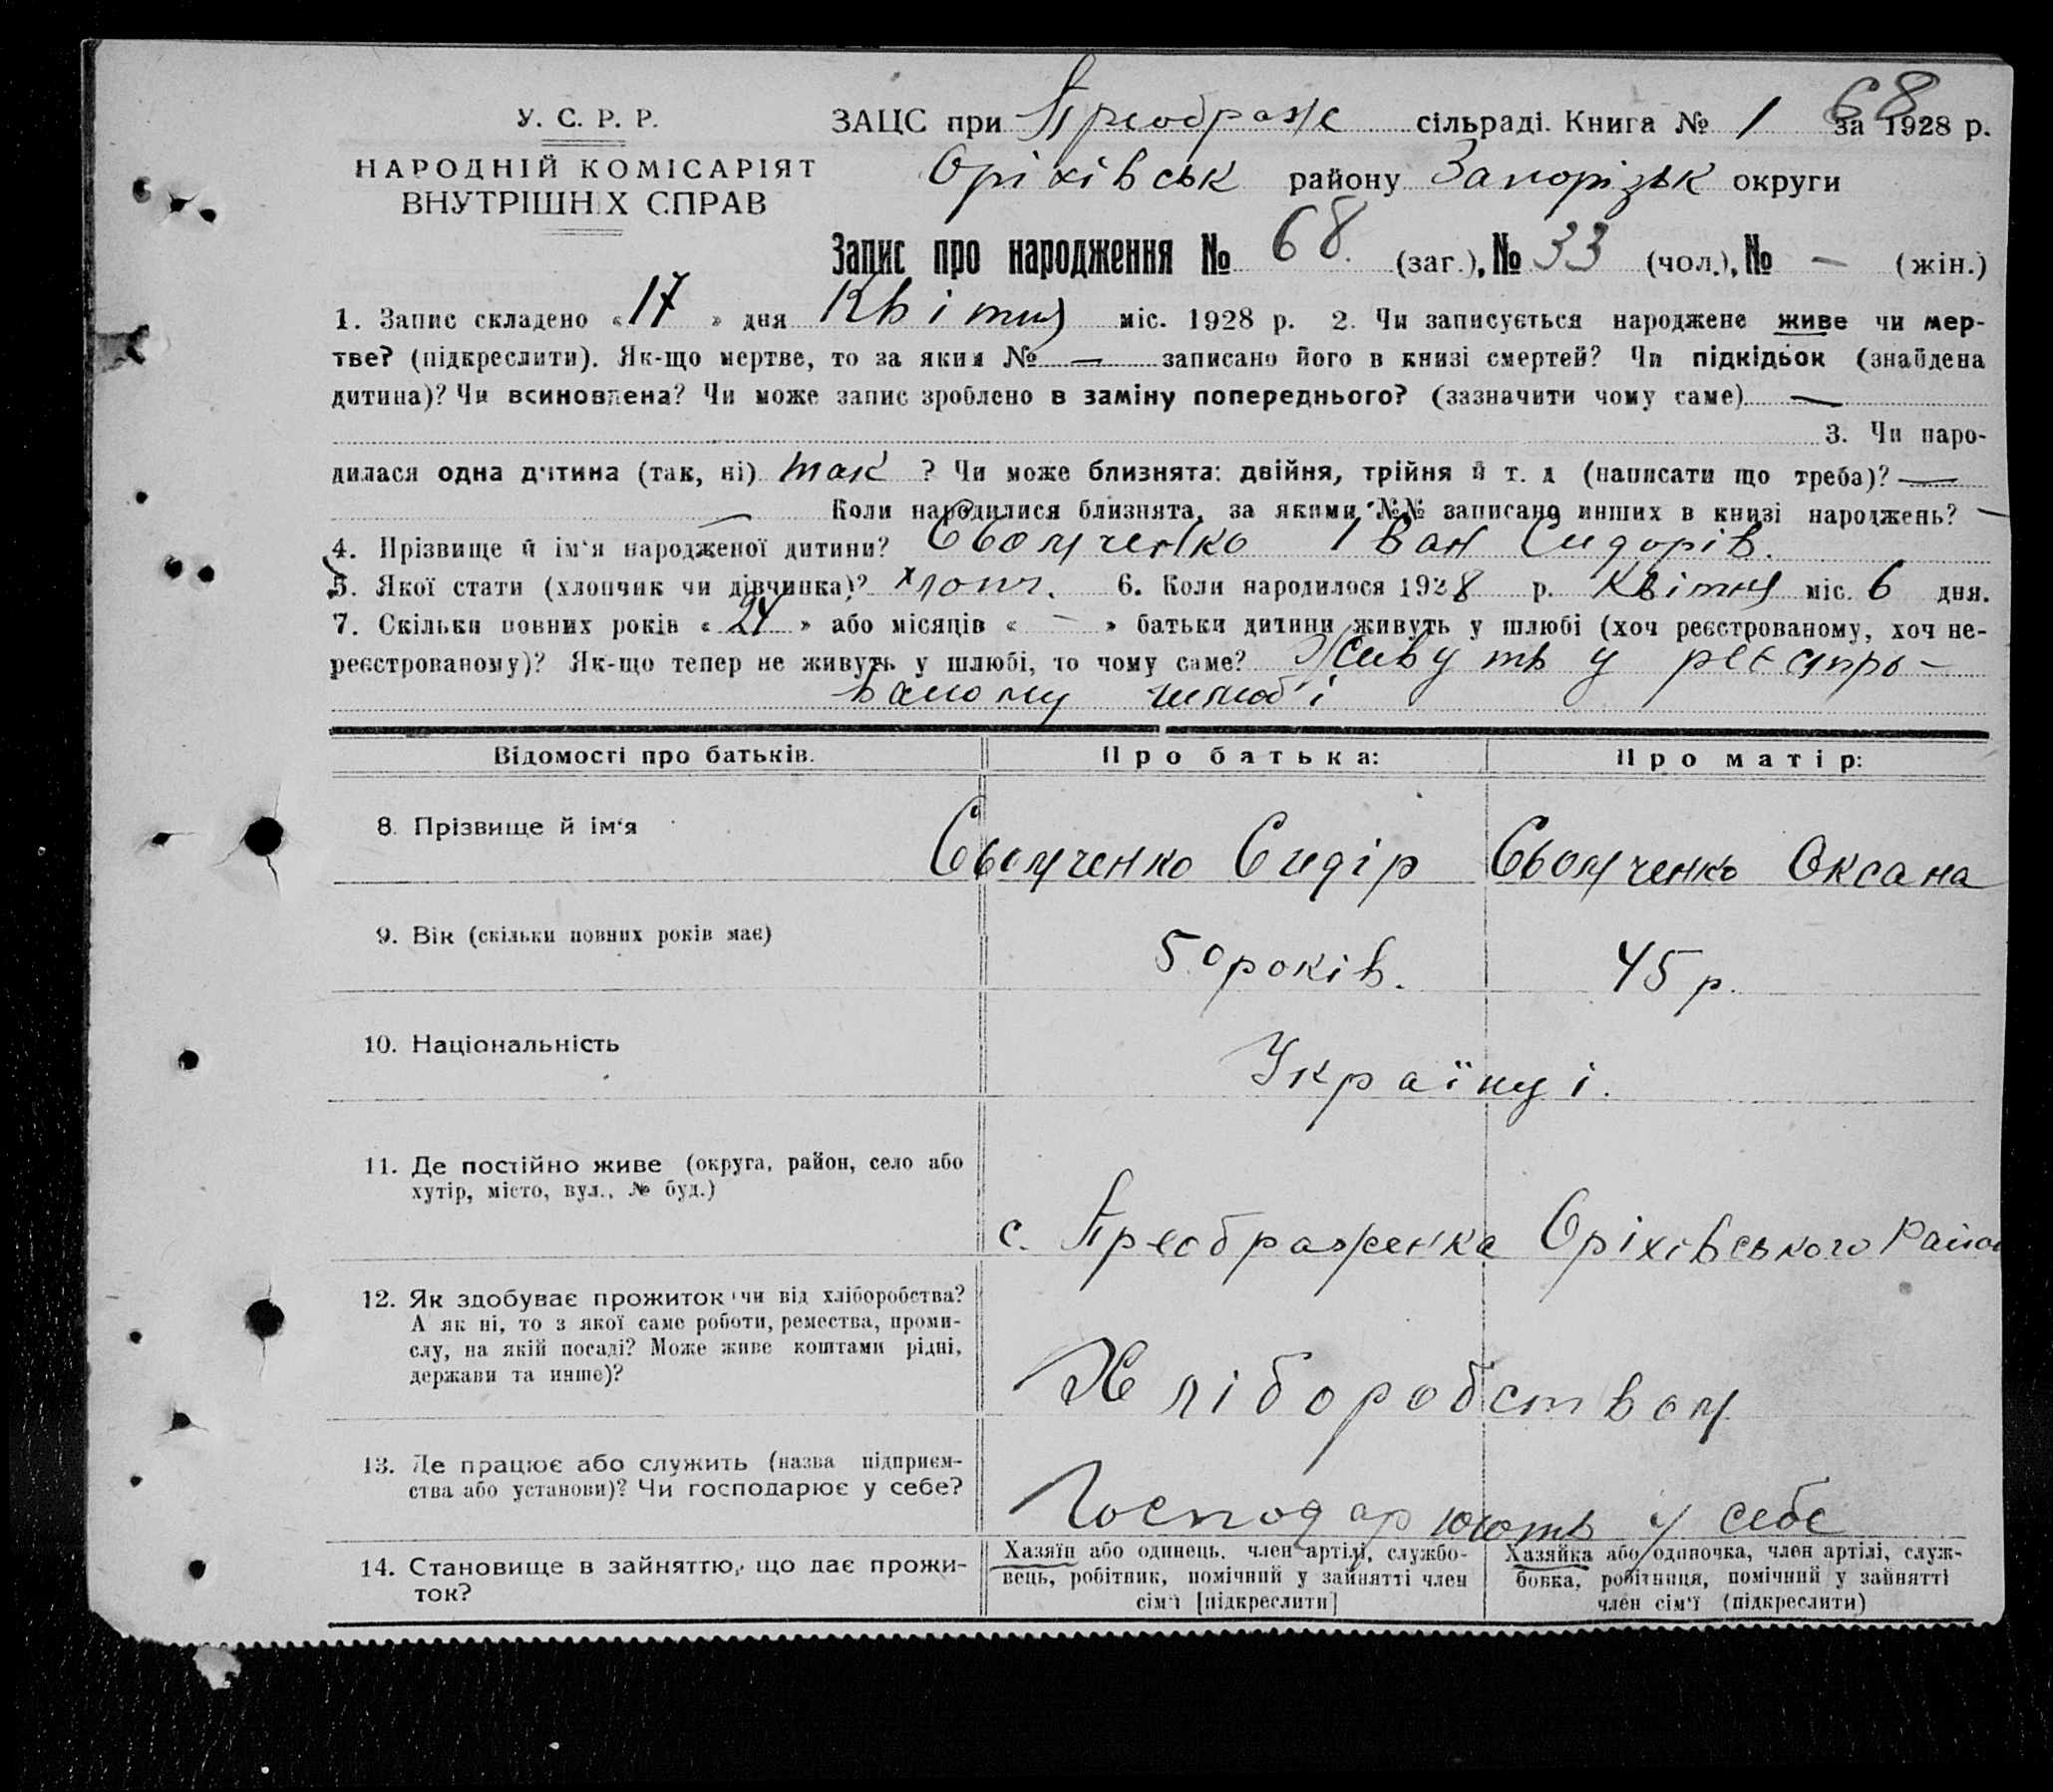 68
У. С. Р. Р.
НАРОДНІЙ КОМІСАРІЯТ
ВНУТРІШНІХ СПРАВ
ЗАЦС при Преображ сільраді. Книга № 1 за 1928 р.
Оріхівськ району Запорізьк округи
Запис про народження № 68. (заг.), № 33 (чол.), № — (жін.)
1. Запис складено «17» дня Квітня міс. 1928 р. 2. Чи записується народжене живе чи мер-
тве? (підкреслити). Як-що мертве, то за яким № — записано його в книзі смертей? Чи підкідьок (знайдена
дитина)? Чи всиновлена? Чи може запис зроблено в заміну попереднього? (зазначити чому саме) —
3. Чи наро-
дилася одна дитина (так, ні) так ? Чи може близнята: двійня, трійня й т. д (написати що треба)? —
— Коли народилися близнята, за якими №№ записано инших в книзі народжень? —
4. Прізвище й ім'я народженої дитини? Євомченко Іван Сидорів.
5. Якої стати (хлопчик чи дівчинка)? хлопч. 6. Коли народилося 1928 р. Квітня міс. 6 дня.
7. Скільки повних років «24» або місяців « — » батьки дитини живуть у шлюбі (хоч реєстрованому, хоч не-
реєстрованому)? Як-що тепер не живуть у шлюбі, то чому саме? Живуть у реєстро-
ваному шлюбі
Відомості про батьків. Про батька: Про матір:
8. Прізвище й ім'я
Євомченко Сидір Євомченко Оксана
9. Вік (скільки повних років має)
50 років. 45 р.
10. Національність
Українці.
11. Де постійно живе (округа, район, село або
хутір, місто, вул., № буд.)
с. Преображенка Оріхівського Район
12. Як здобуває прожиток чи від хліборобства?
А як ні, то з якої саме роботи, ремества, проми-
слу, на якій посаді? Може живе коштами рідні,
держави та инше)?
Хліборобством
13. Де працює або служить (назва підприєм-
ства або установи)? Чи господарює у себе?
Господарюють у себе
14. Становище в зайняттю, що дає прожи-
ток?
Хазяїн або одинець, член артілі, службо-
вець, робітник, помічний у зайнятті член
сім'ї [підкреслити]
Хазяйка або одиночка, член артілі, служ-
бовка, робітниця, помічний у зайнятті
член сім'ї (підкреслити)